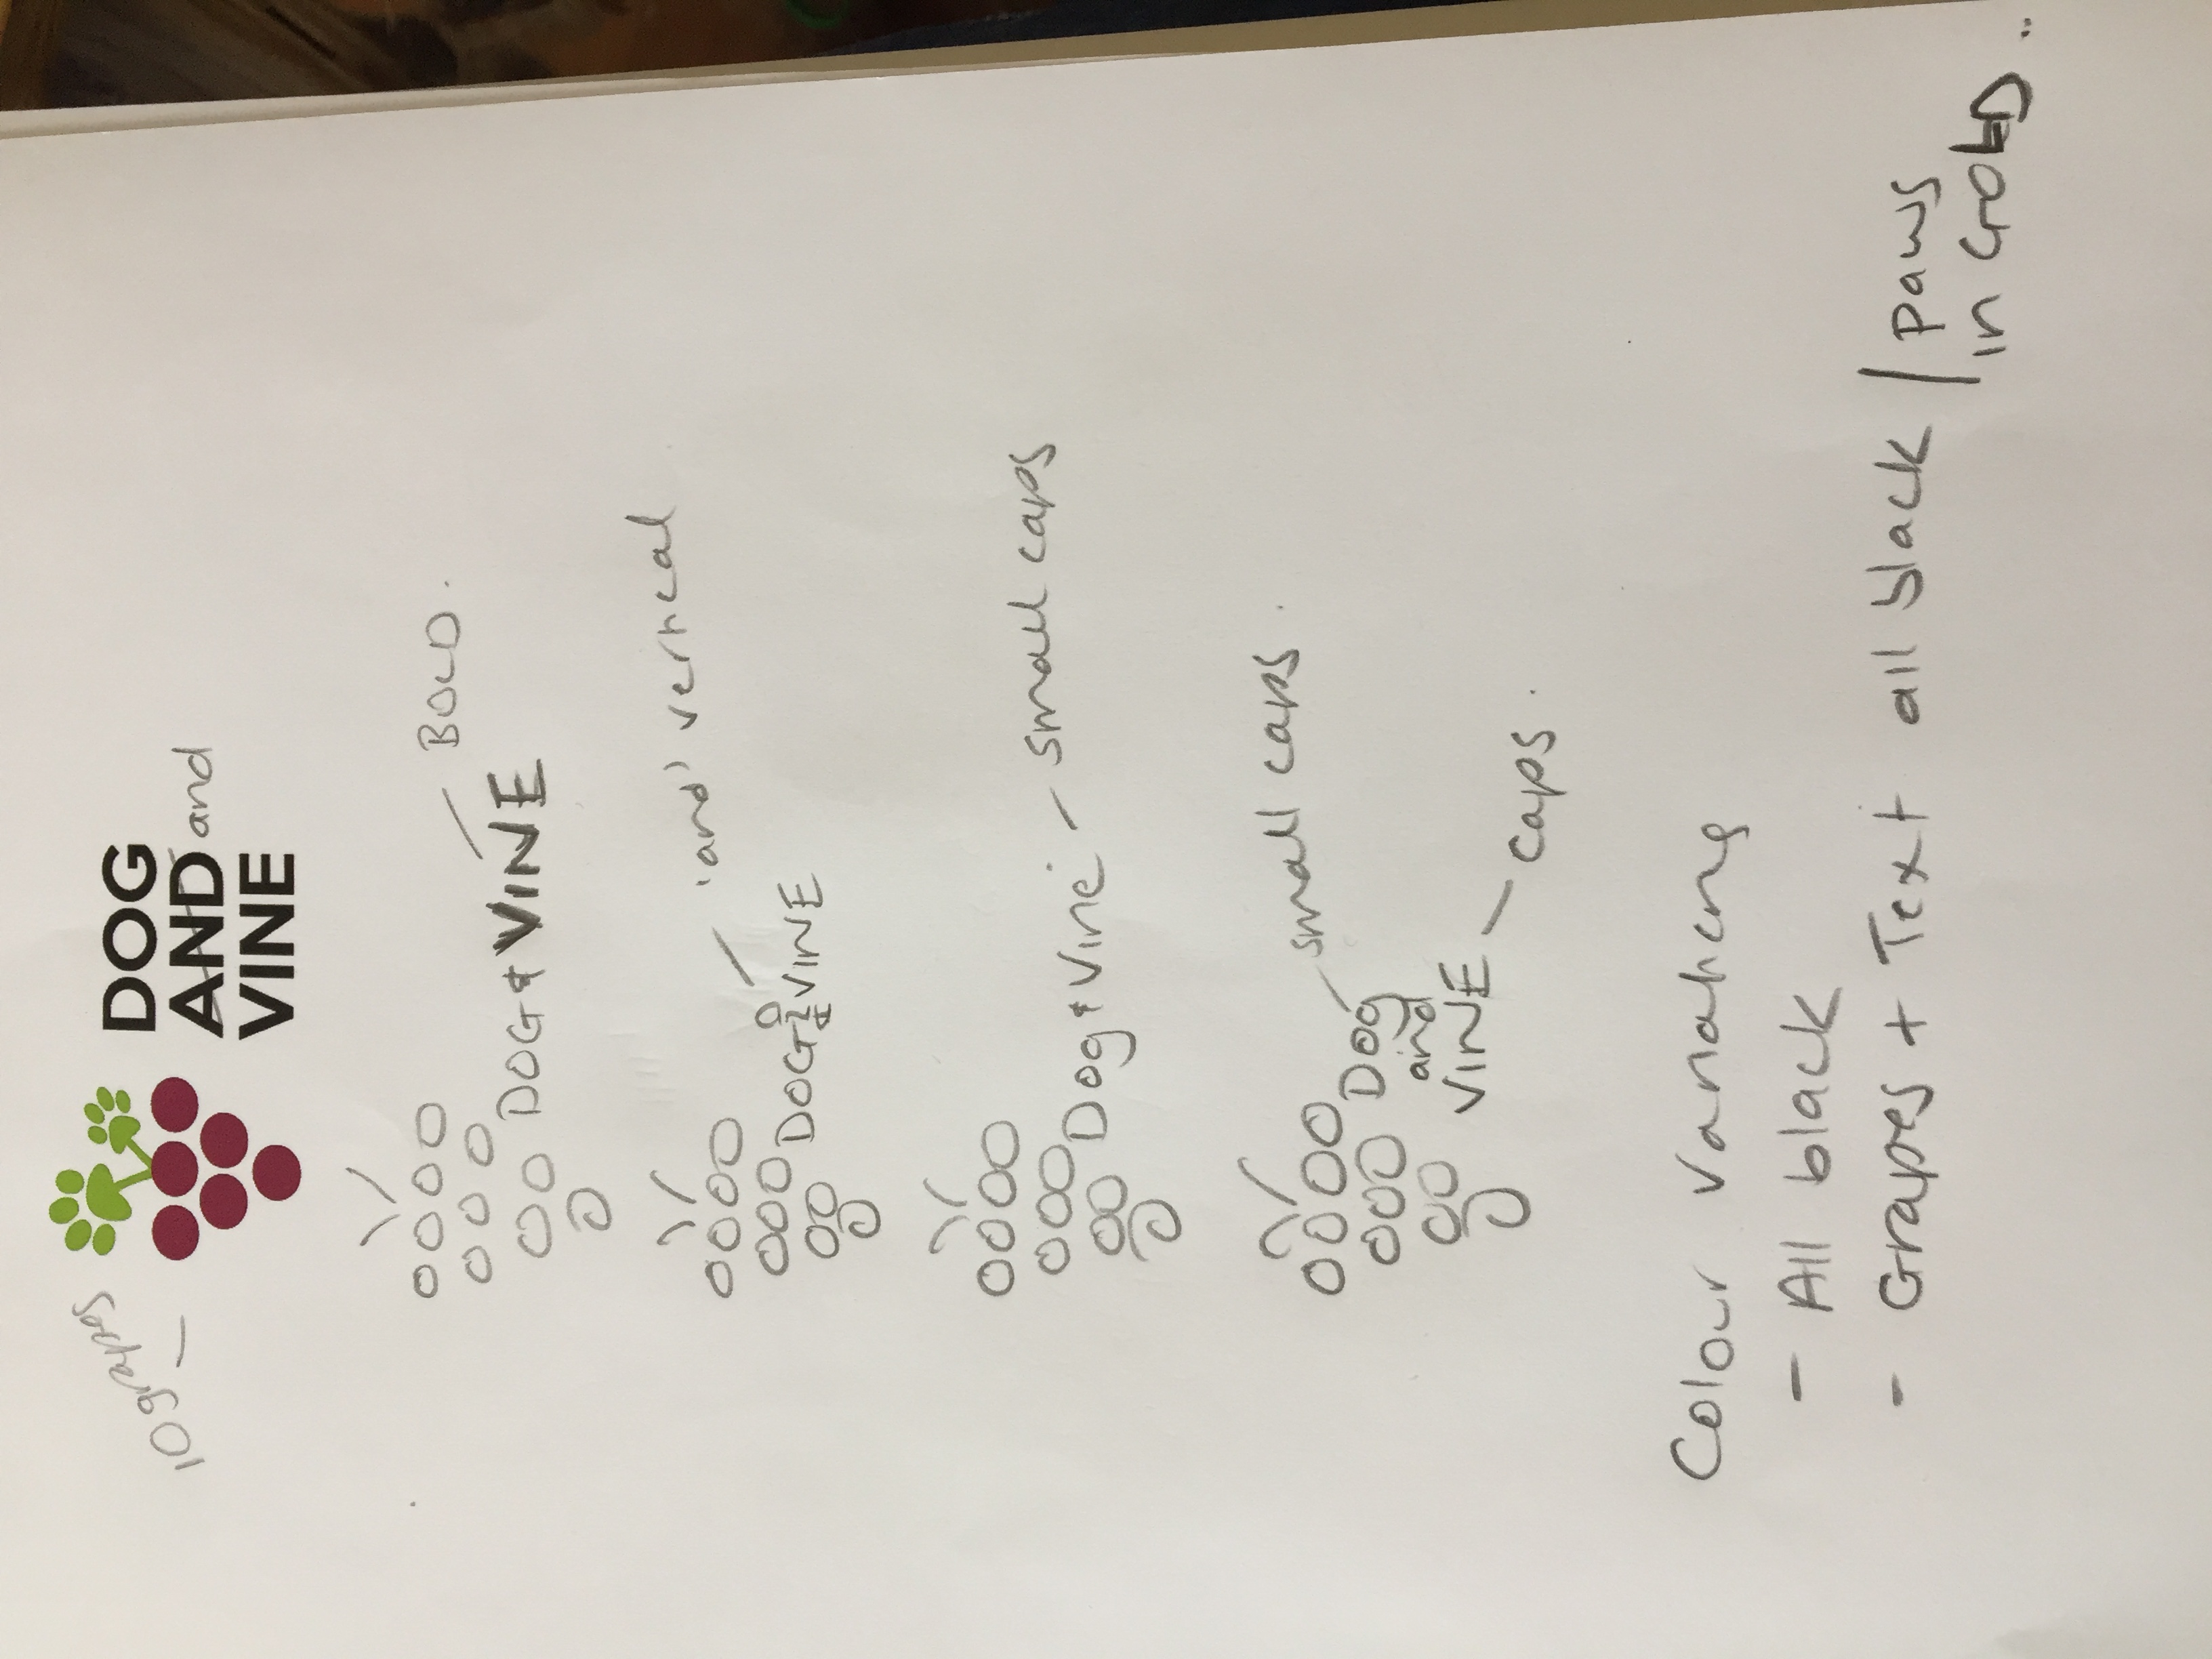 10 grapes
DOG
AND and
VINE
BOLD.
DOG + VINE
'and' vertical
DOG AND VINE
Dog + Vine - small caps
small caps.
Dog
and
VINE - caps.
Colour variations
- All black
- Grapes + Text all black / paws
in GOLD..